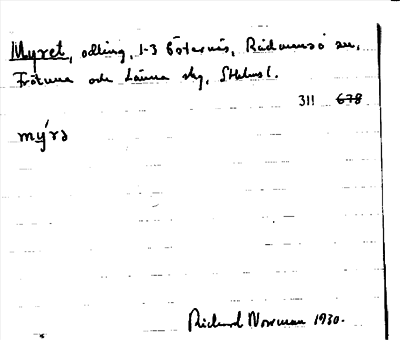 Myret, odling, 1-3 Göternäs, Rådmansö sn,
Frötuna och Länna skg, Sthlms l.
311 678
my´rə
Rickard Norrman 1930.